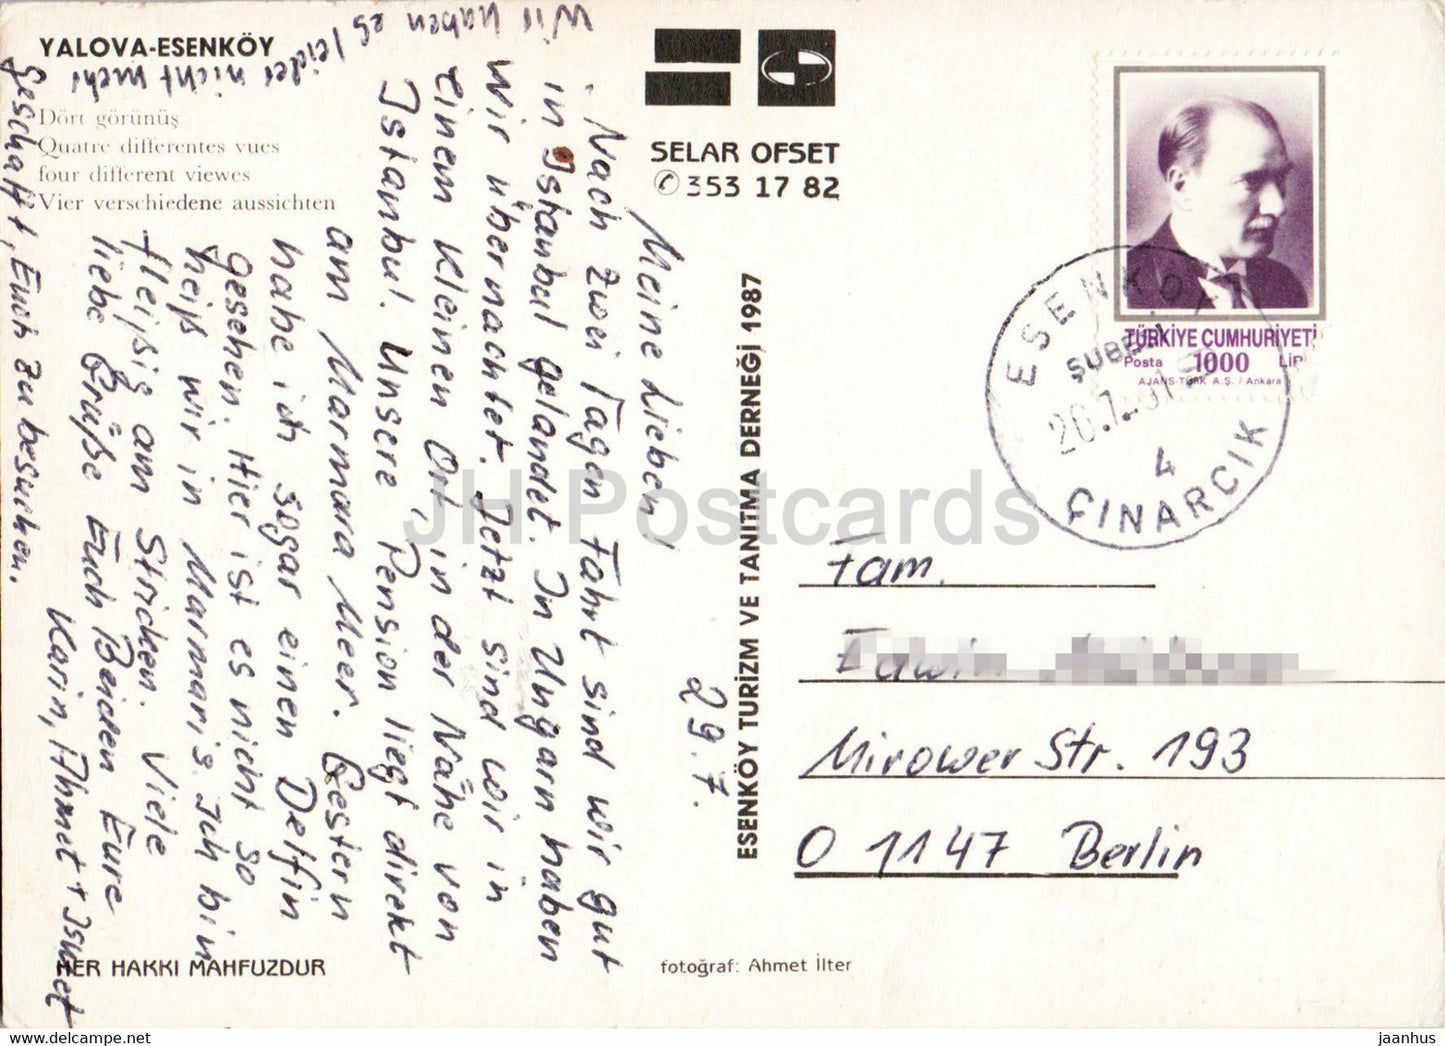 YALOVA-ESENKÖY
Dört görünüş
Quatre differentes vues
four different viewes
Vier verschiedene aussichten
SELAR OFSET
353 17 82
29.7.
Meine Lieben!
Nach zwei Tagen Fahrt sind wir gut
in Istanbul gelandet. In Ungarn haben
wir übernachtet. Jetzt sind wir in
einem kleinen Ort, in der Nähe von
Istambul. Unsere Pension liegt direkt
am Marmara Meer. Gestern
habe ich sogar einen Delfin
gesehen. Hier ist es nicht so
heiß wir in Marmaris. Ich bin
fleißig am Stricken. Viele
liebe Grüße Euch Beiden Eure
Karin, Ahmet + Ismet
Wir haben es
leider nicht mehr
geschafft, Euch zu besuchen.
HER HAKKI MAHFUZDUR
ESENKÖY TURİZM VE TANITMA DERNEĞİ 1987
fotoğraf: Ahmet İlter
TÜRKİYE CUMHURİYETİ
Posta 1000 LİR
AJANS-TÜRK A.Ş. / Ankara
ESENKÖY
ŞUBESİ
4
ÇINARCIK
Fam.
Edwin
Mirower Str. 193
O 1147 Berlin
JH Postcards
www.delcampe.net
jaanhus